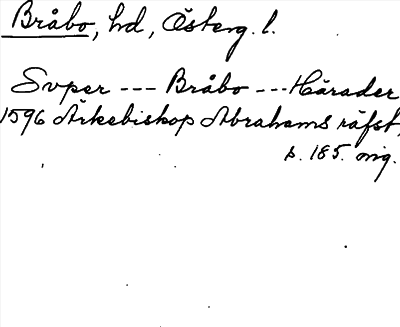 Bråbo, hd, Österg. l.
Svper --- Bråbo --- Härader
1596 Ärkebiskop Abrahams räfst,
s. 185. orig.